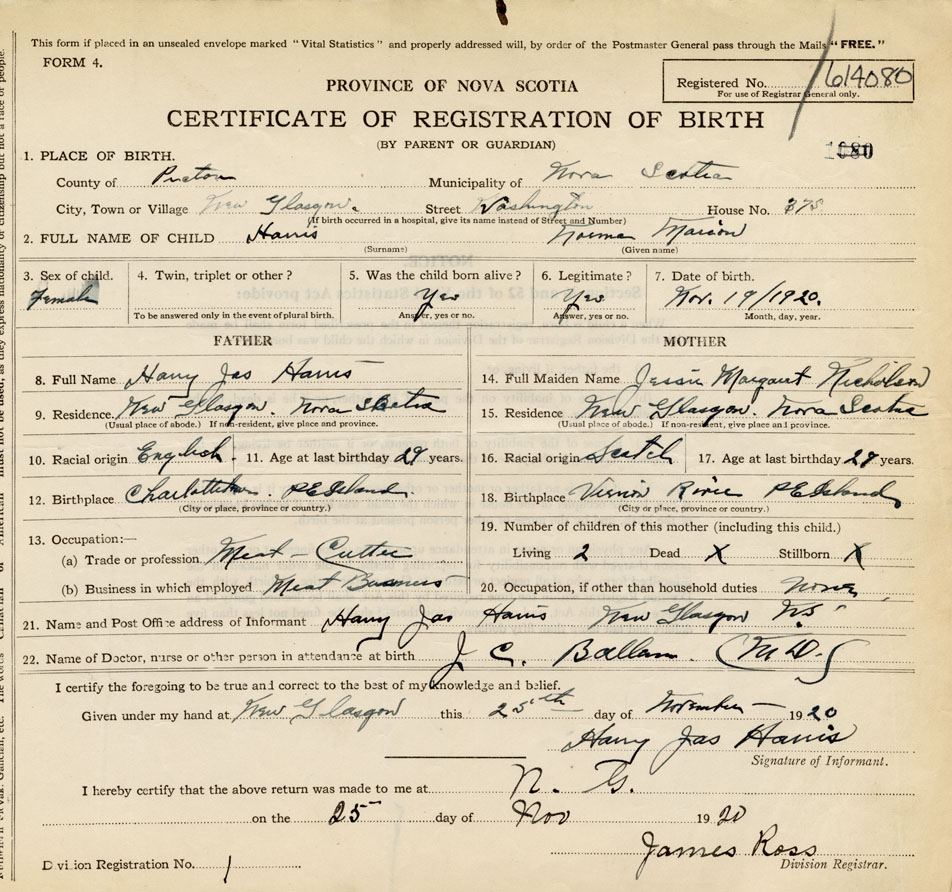 This form if placed in an unsealed envelope marked "Vital Statistics" and properly addressed will, by order of the Postmaster General pass through the Mails "FREE."
FORM 4.
Registered No. 614080
For use of Registrar General only.
PROVINCE OF NOVA SCOTIA
CERTIFICATE OF REGISTRATION OF BIRTH
(BY PARENT OR GUARDIAN)
1080
1. PLACE OF BIRTH.
County of Pictou Municipality of Nova Scotia
City, Town or Village New Glasgow. Street Washington House No. 375
(If birth occurred in a hospital, give its name instead of Street and Number)
2. FULL NAME OF CHILD Harris Norma Marion
(Surname) (Given name)
3. Sex of child. Female
4. Twin, triplet or other?
To be answered only in the event of plural birth.
5. Was the child born alive?
Yes
Answer, yes or no.
6. Legitimate?
Yes
Answer, yes or no.
7. Date of birth.
Nov. 19/1920.
Month, day, year.
FATHER
8. Full Name Harry Jas Harris
9. Residence New Glasgow. Nova Scotia
(Usual place of abode.) If non-resident, give place and province.
10. Racial origin English. 11. Age at last birthday 29 years.
12. Birthplace Charlottetown. PEIsland.
(City or place, province or country.)
13. Occupation:—
(a) Trade or profession Meat-Cutter
(b) Business in which employed Meat Business
MOTHER
14. Full Maiden Name Jessie Margaret Nicholson
15. Residence New Glasgow. Nova Scotia
(Usual place of abode.) If non-resident, give place and province.
16. Racial origin Scotch 17. Age at last birthday 29 years.
18. Birthplace Vernon River PEIsland
(City or place, province or country.)
19. Number of children of this mother (including this child.)
Living 2 Dead X Stillborn X
20. Occupation, if other than household duties None
21. Name and Post Office address of Informant Harry Jas Harris New Glasgow NS
22. Name of Doctor, nurse or other person in attendance at birth J C. Ballem. (M.D.)
I certify the foregoing to be true and correct to the best of my knowledge and belief.
Given under my hand at New Glasgow this 25th day of November 1920
Harry Jas Harris
Signature of Informant.
I hereby certify that the above return was made to me at N. G.
on the 25 day of Nov 1920
James Ross
Division Registrar.
Division Registration No. 1